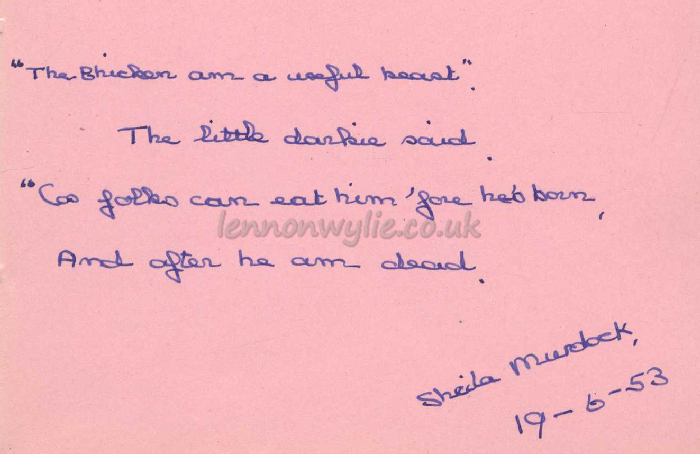 "The Bhicken am a useful beast".
The little darkie said.
"Cos folks can eat him 'fore he's born,
lennonwylie.co.uk
And after he am dead.
Sheila Murdock,
19-6-53